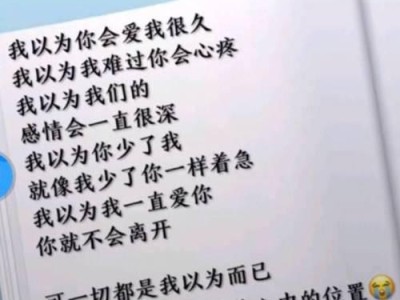 我以为你会爱我很久
我以为我难过你会心疼
我以为我们的
感情会一直很深
我以为你少了我
就像我少了你一样着急
我以为我一直爱你
你就不会离开
可一切都是我以为而已
的位置😭